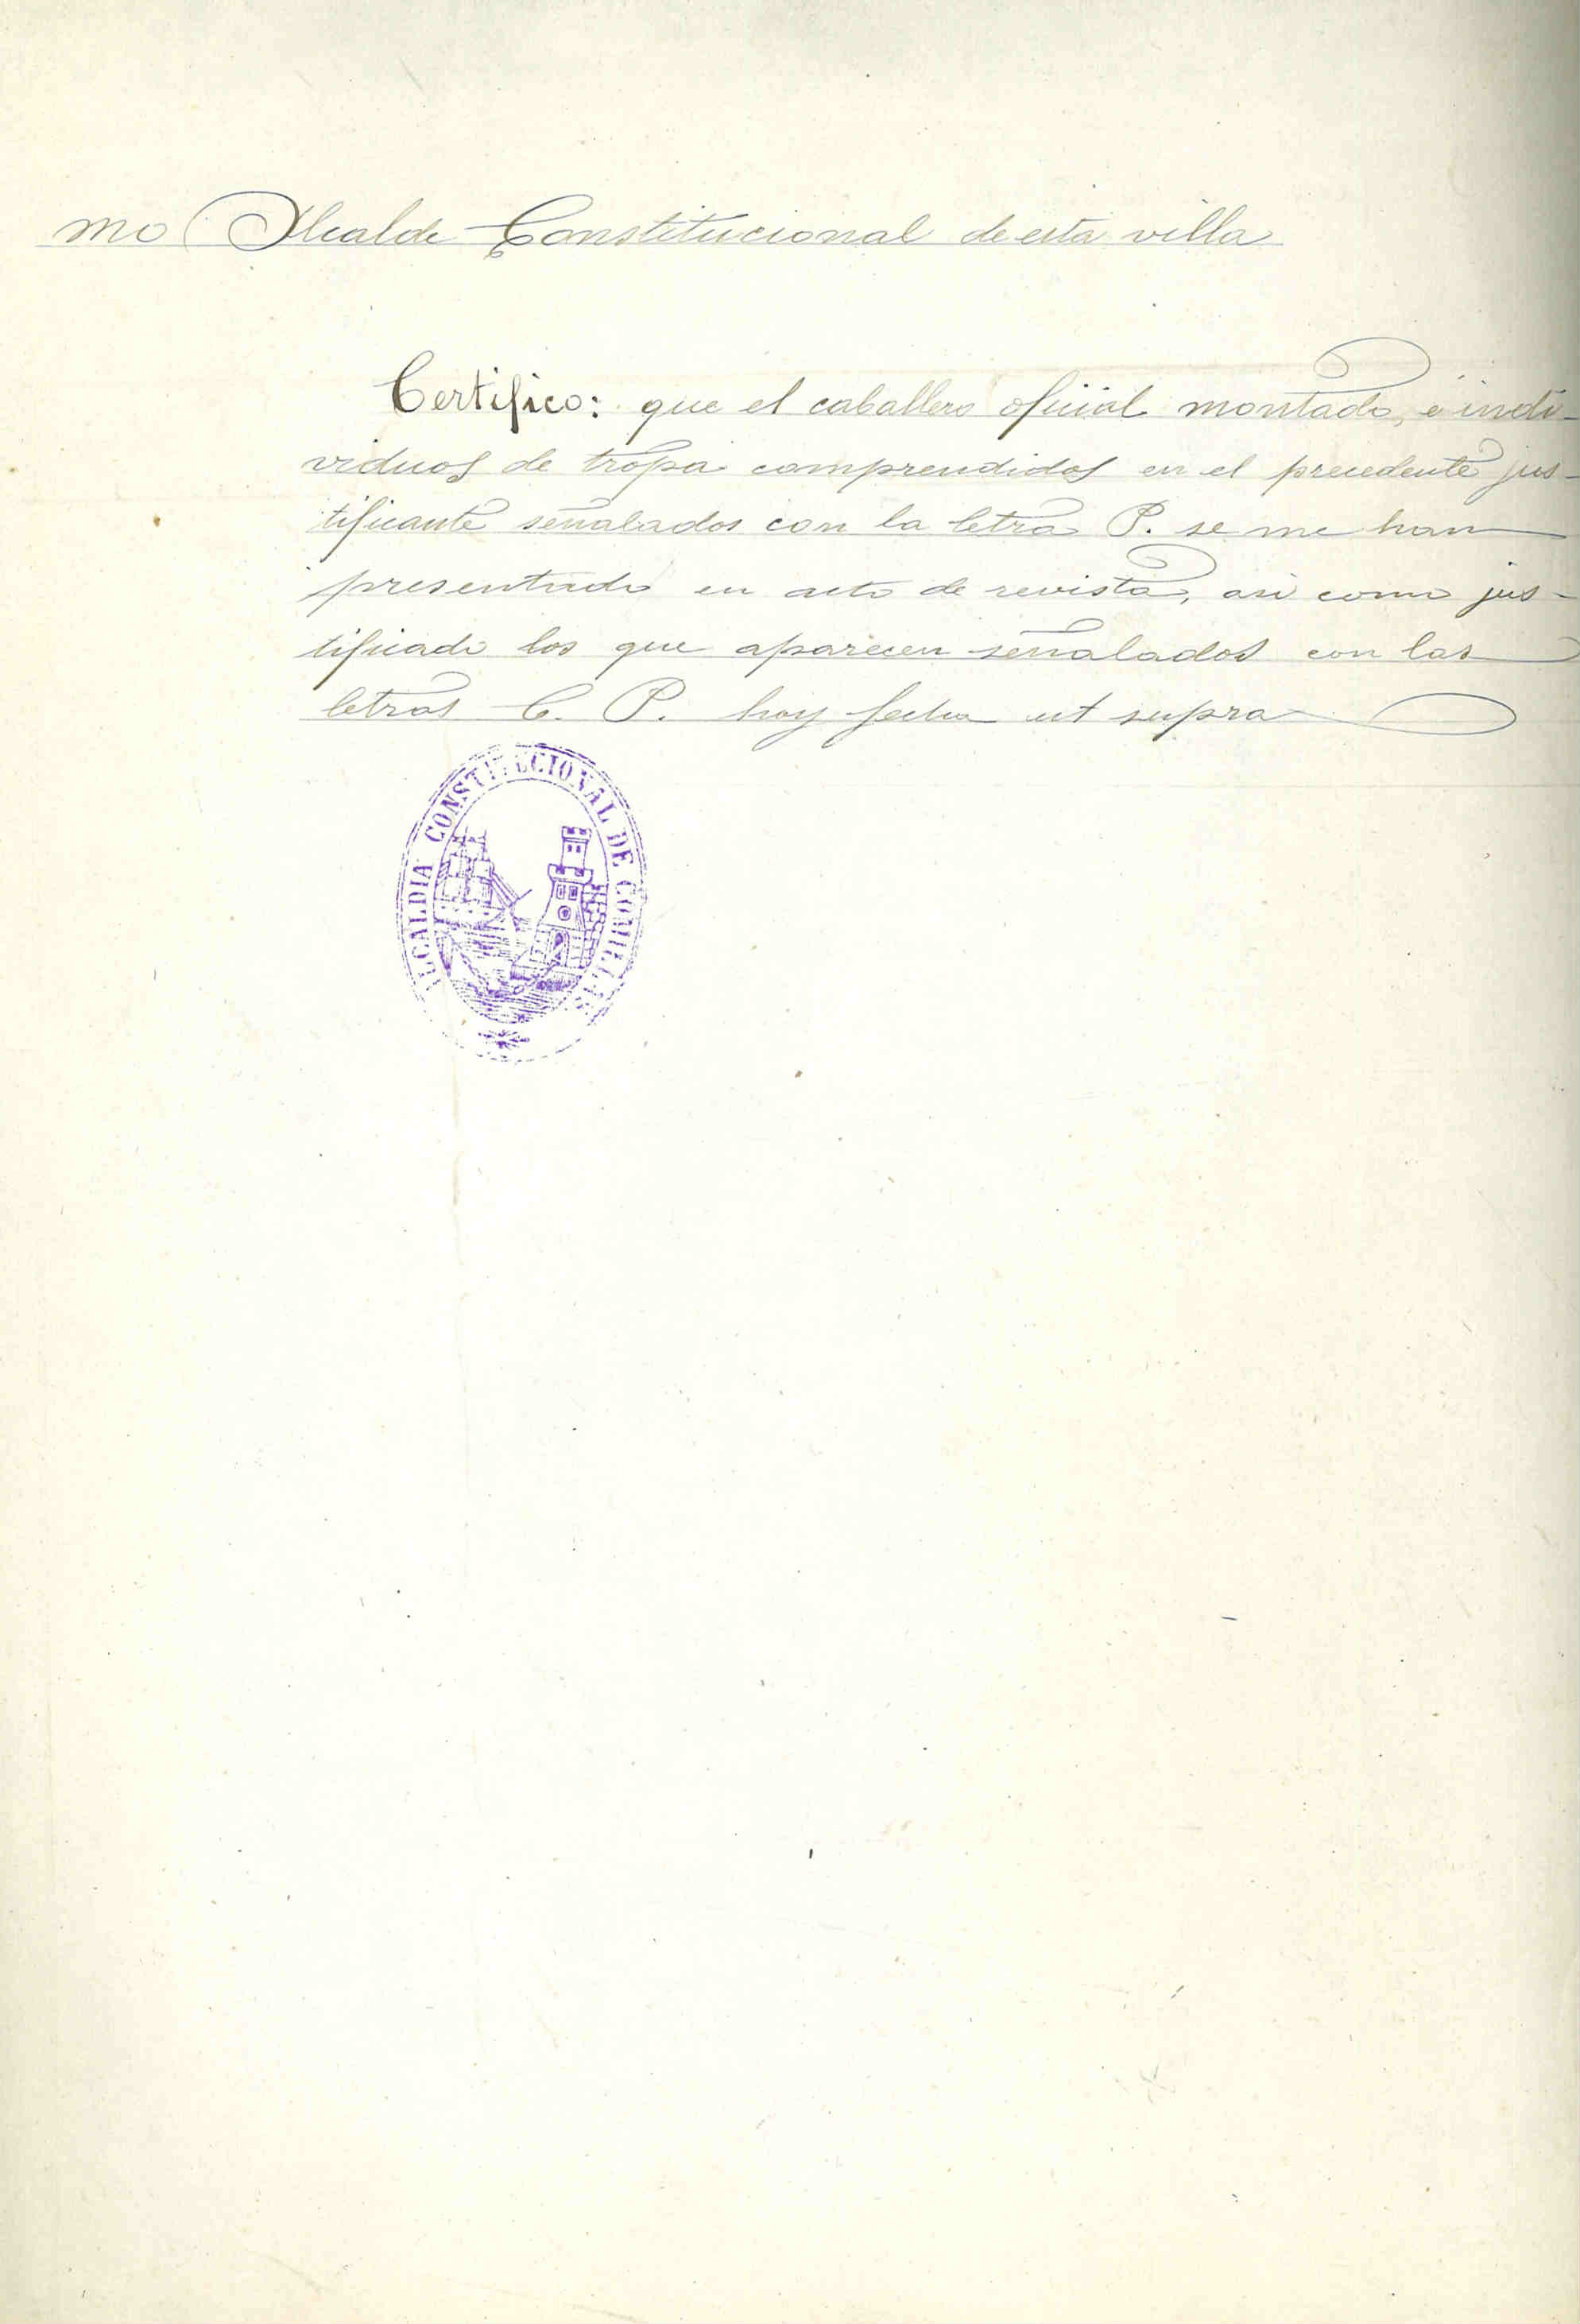 mo Alcalde Constitucional de esta villa
Certifico: que el caballero oficial montado, é indi-
viduos de tropa comprendidos en el precedente jus-
tificante señalados con la letra P. se me han
presentado en acto de revista, asi como jus-
tificado los que aparecen señalados con las
letras C. P. hoy fecha ut supra
ALCALDIA CONSTITUCIONAL DE COMILLAS